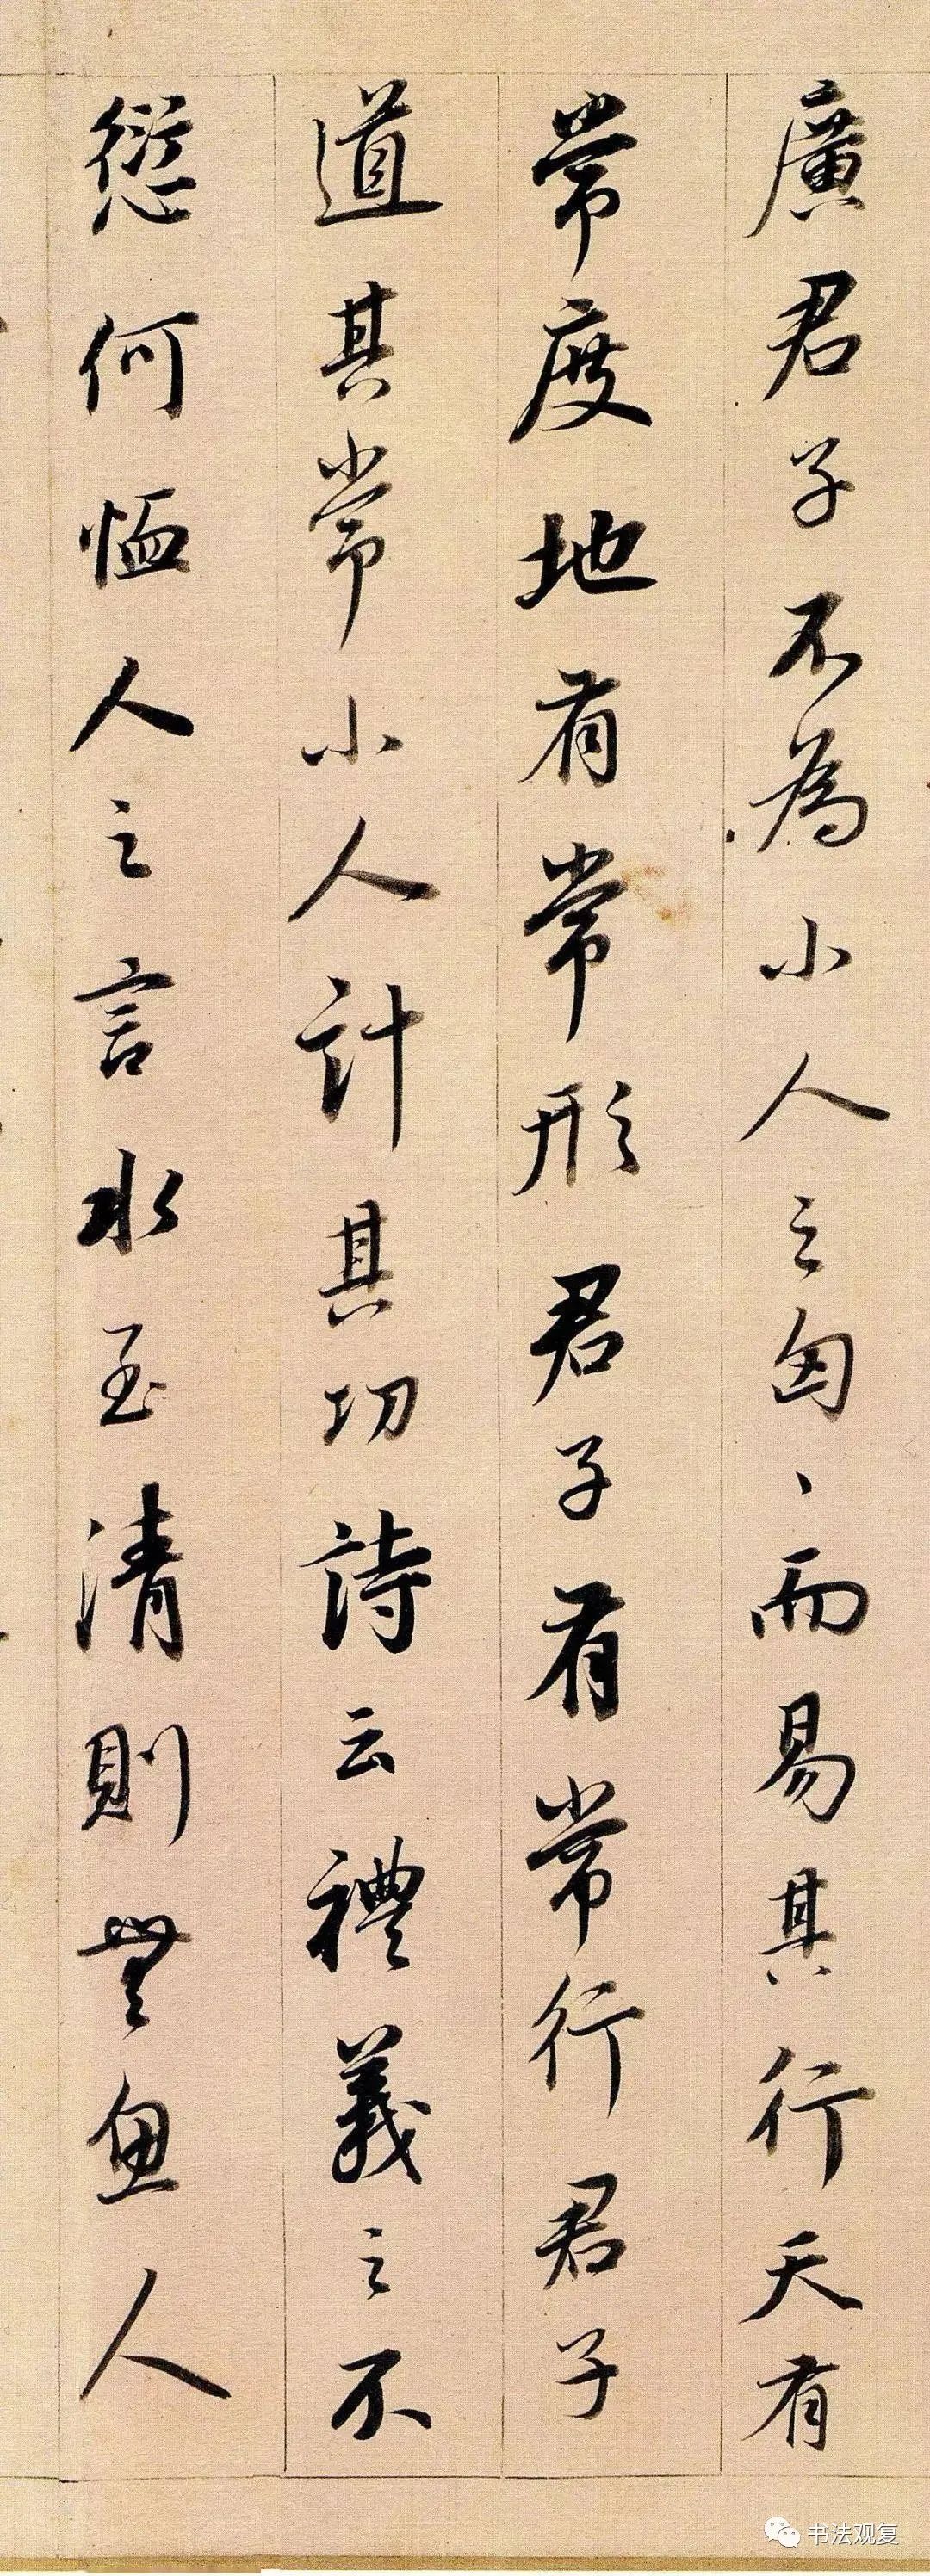 廣君子不為小人之匈、而易其行天有
常度地有常形君子有常行君子
道其常小人計其功詩云禮義之不
愆何恤人之言水至清則無魚人
书法观复